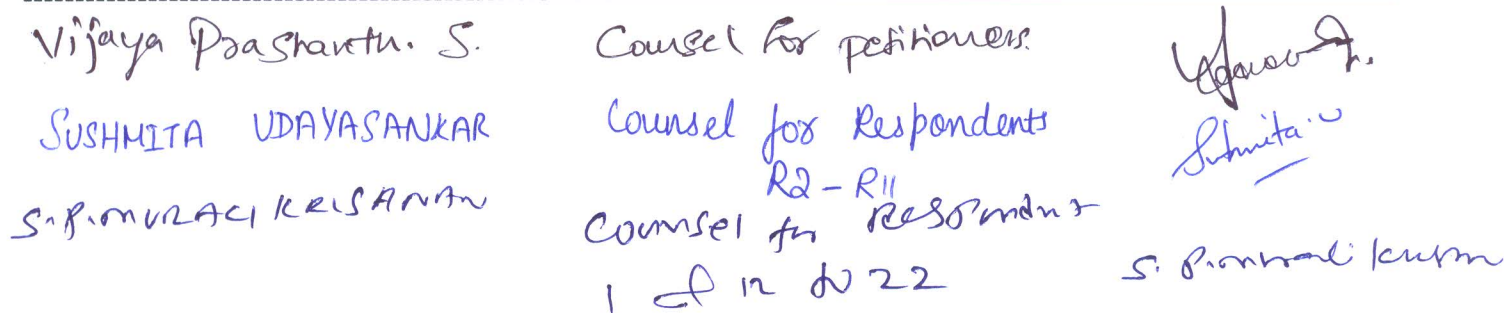 Vijaya Prashanth. S. Counsel for petitioners.
SUSHMITA UDAYASANKAR Counsel for Respondents Sushmita.U
R2 - R11
S.P. MURALI KRISHNAN Counsel for Respondent
1 & 12 to 22